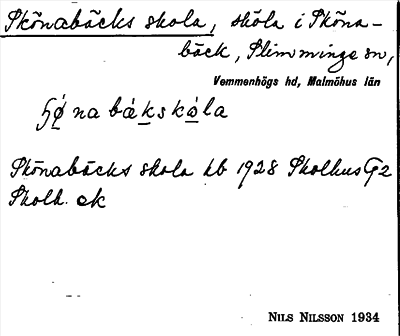 Skönabäcks skola, skola i Sköna-
bäck, Slimminge sn,
Vemmenhögs hd, Malmöhus län
Skönabäcks skola kb 1928 Skolhus G2
Skolk. ek
NILS NILSSON 1934